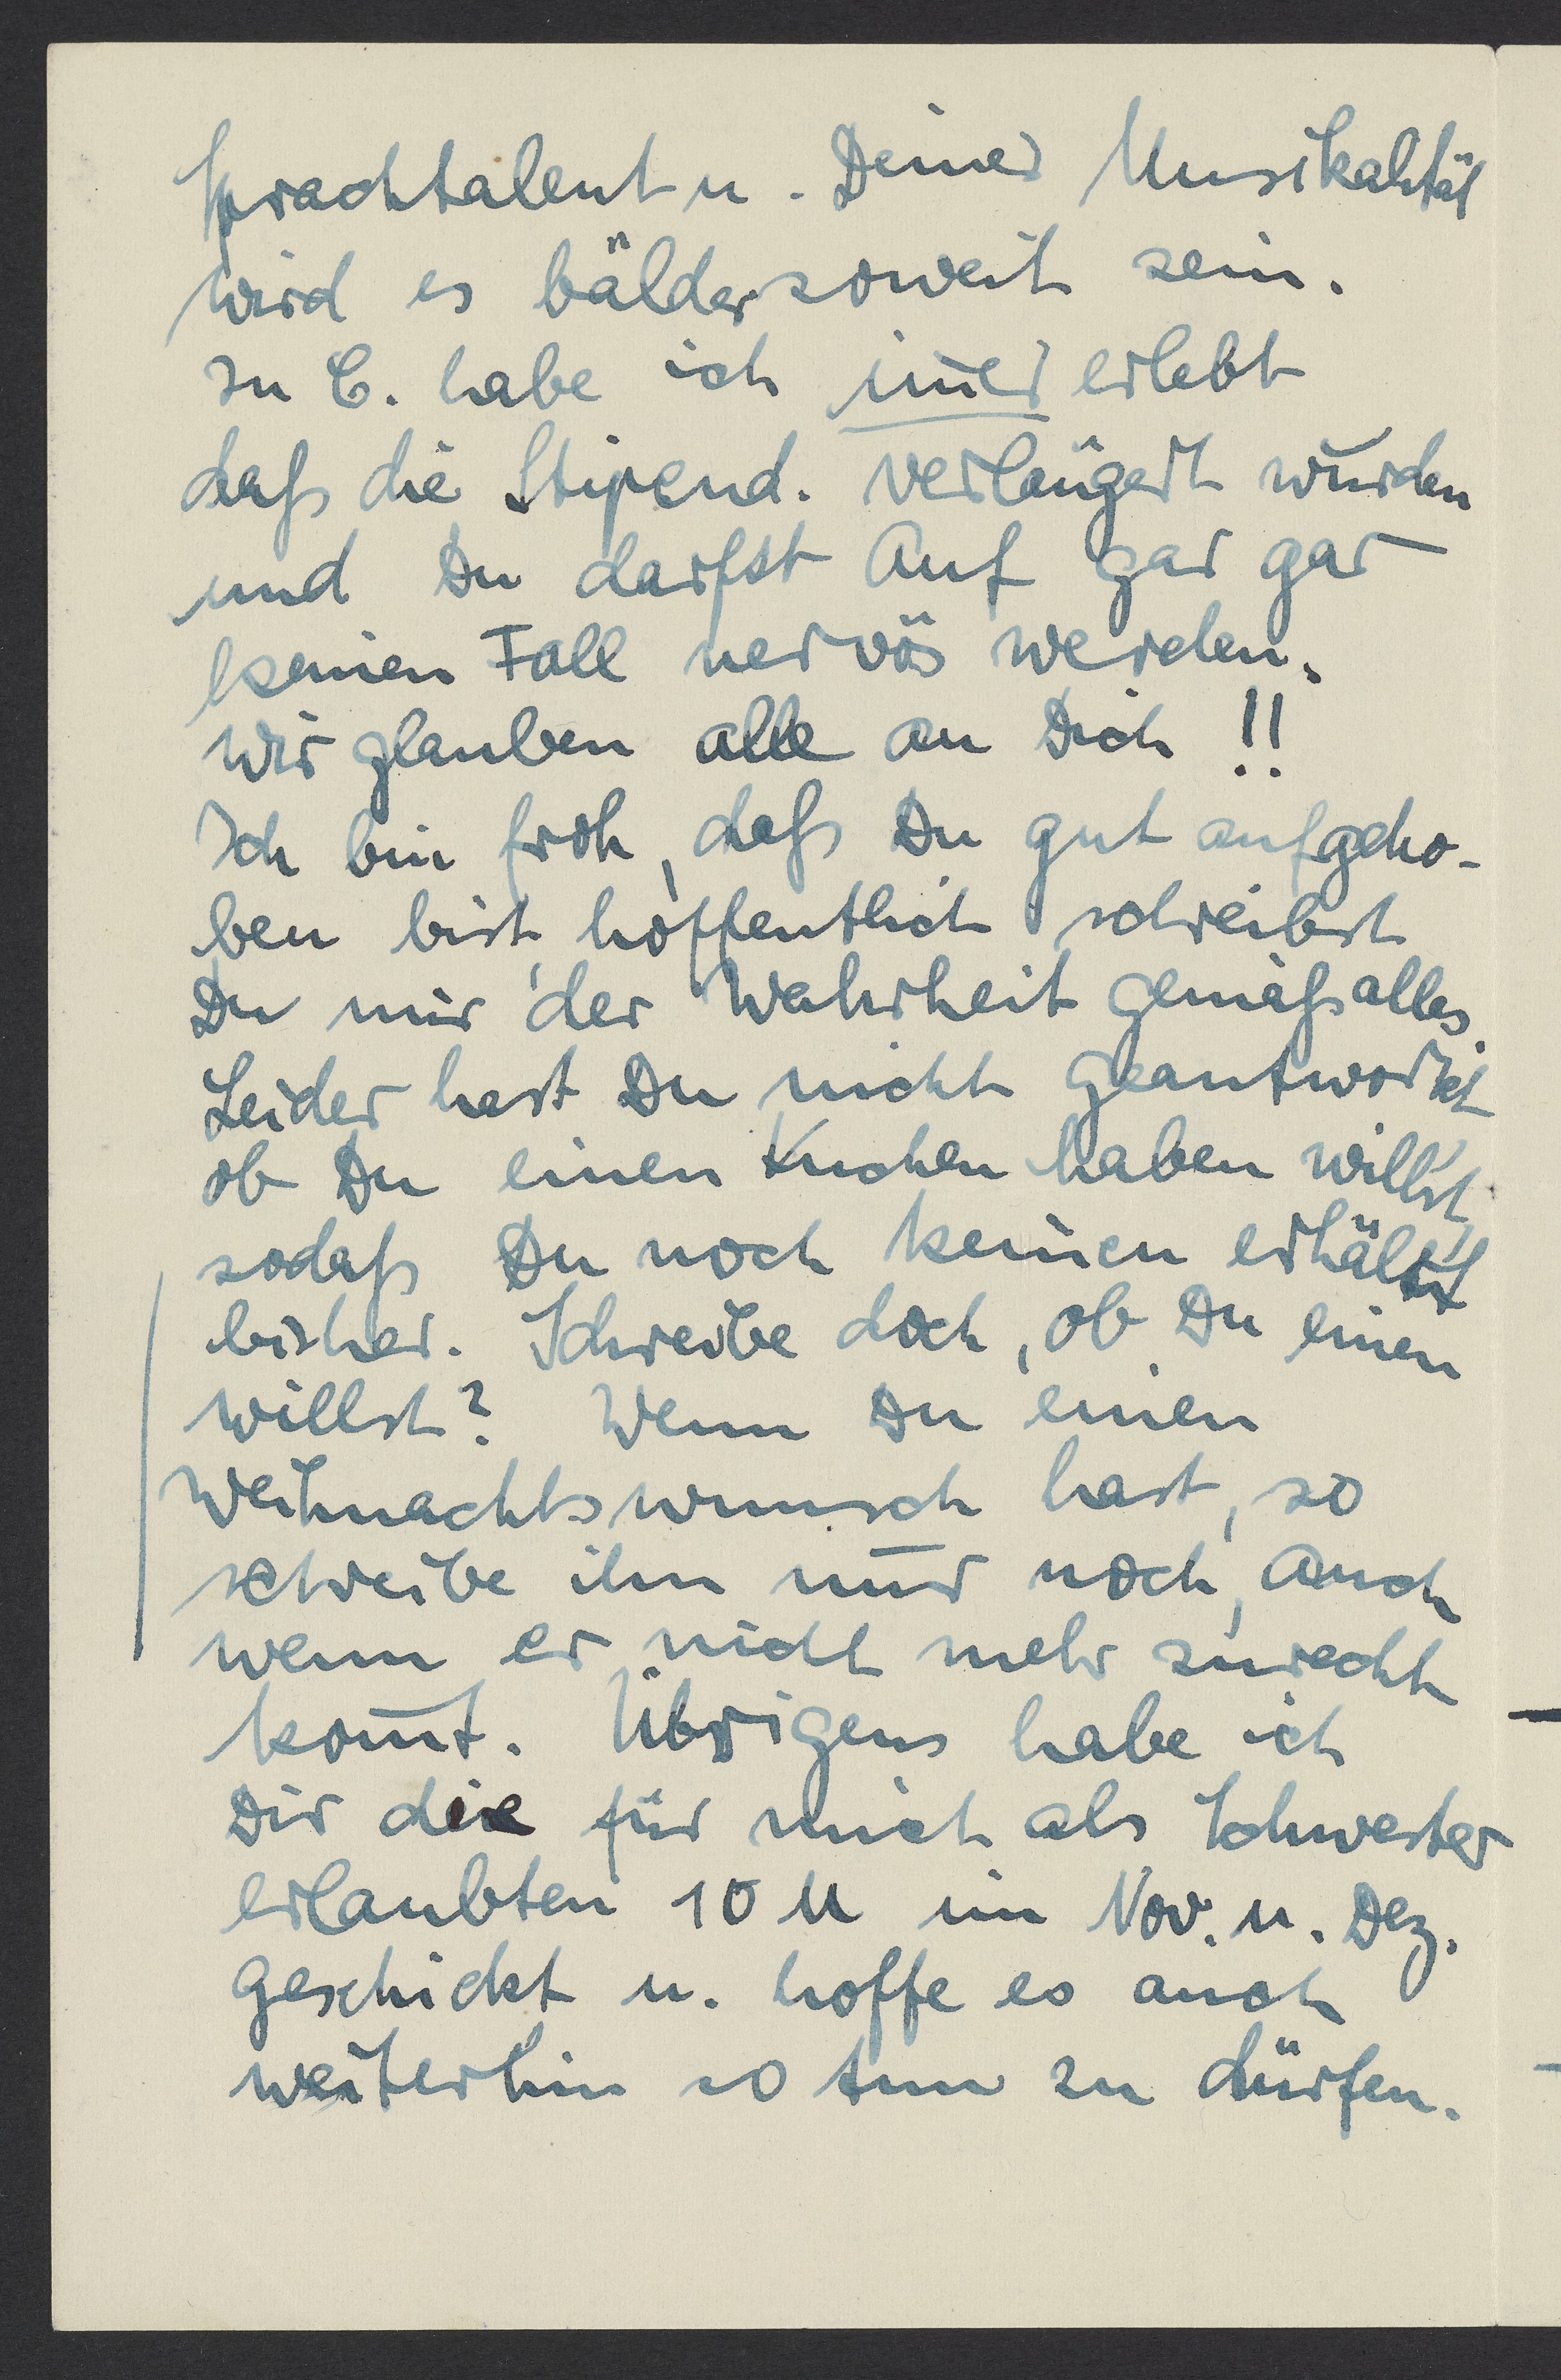 Sprachtalent u. Deiner Musikalität
wird es bälder soweit sein.
In C. habe ich im̄er erlebt
daß die Stipend. verlängert wurden
und Du darfst auf gar gar
keinen Fall nervös werden.
Wir glauben alle an Dich !!
Ich bin froh, daß Du gut aufgeho-
ben bist, hoffentlich schreibst
Du mir der Wahrheit gemäß alles.
Leider hast Du nicht geantwortet
ob Du einen Kuchen haben willst,
sodaß Du noch keinen erhältst
bisher. Schreibe doch, ob Du einen
willst? Wenn Du einen
Weihnachtswunsch hast, so
schreibe ihn nur noch, auch
wenn er nicht mehr zurecht
kom̄t. Übrigens habe ich
Dir die für mich als Schwester
erlaubten 10 M im Nov. u. Dez.
geschickt u. hoffe es auch
weiterhin so tun zu dürfen.